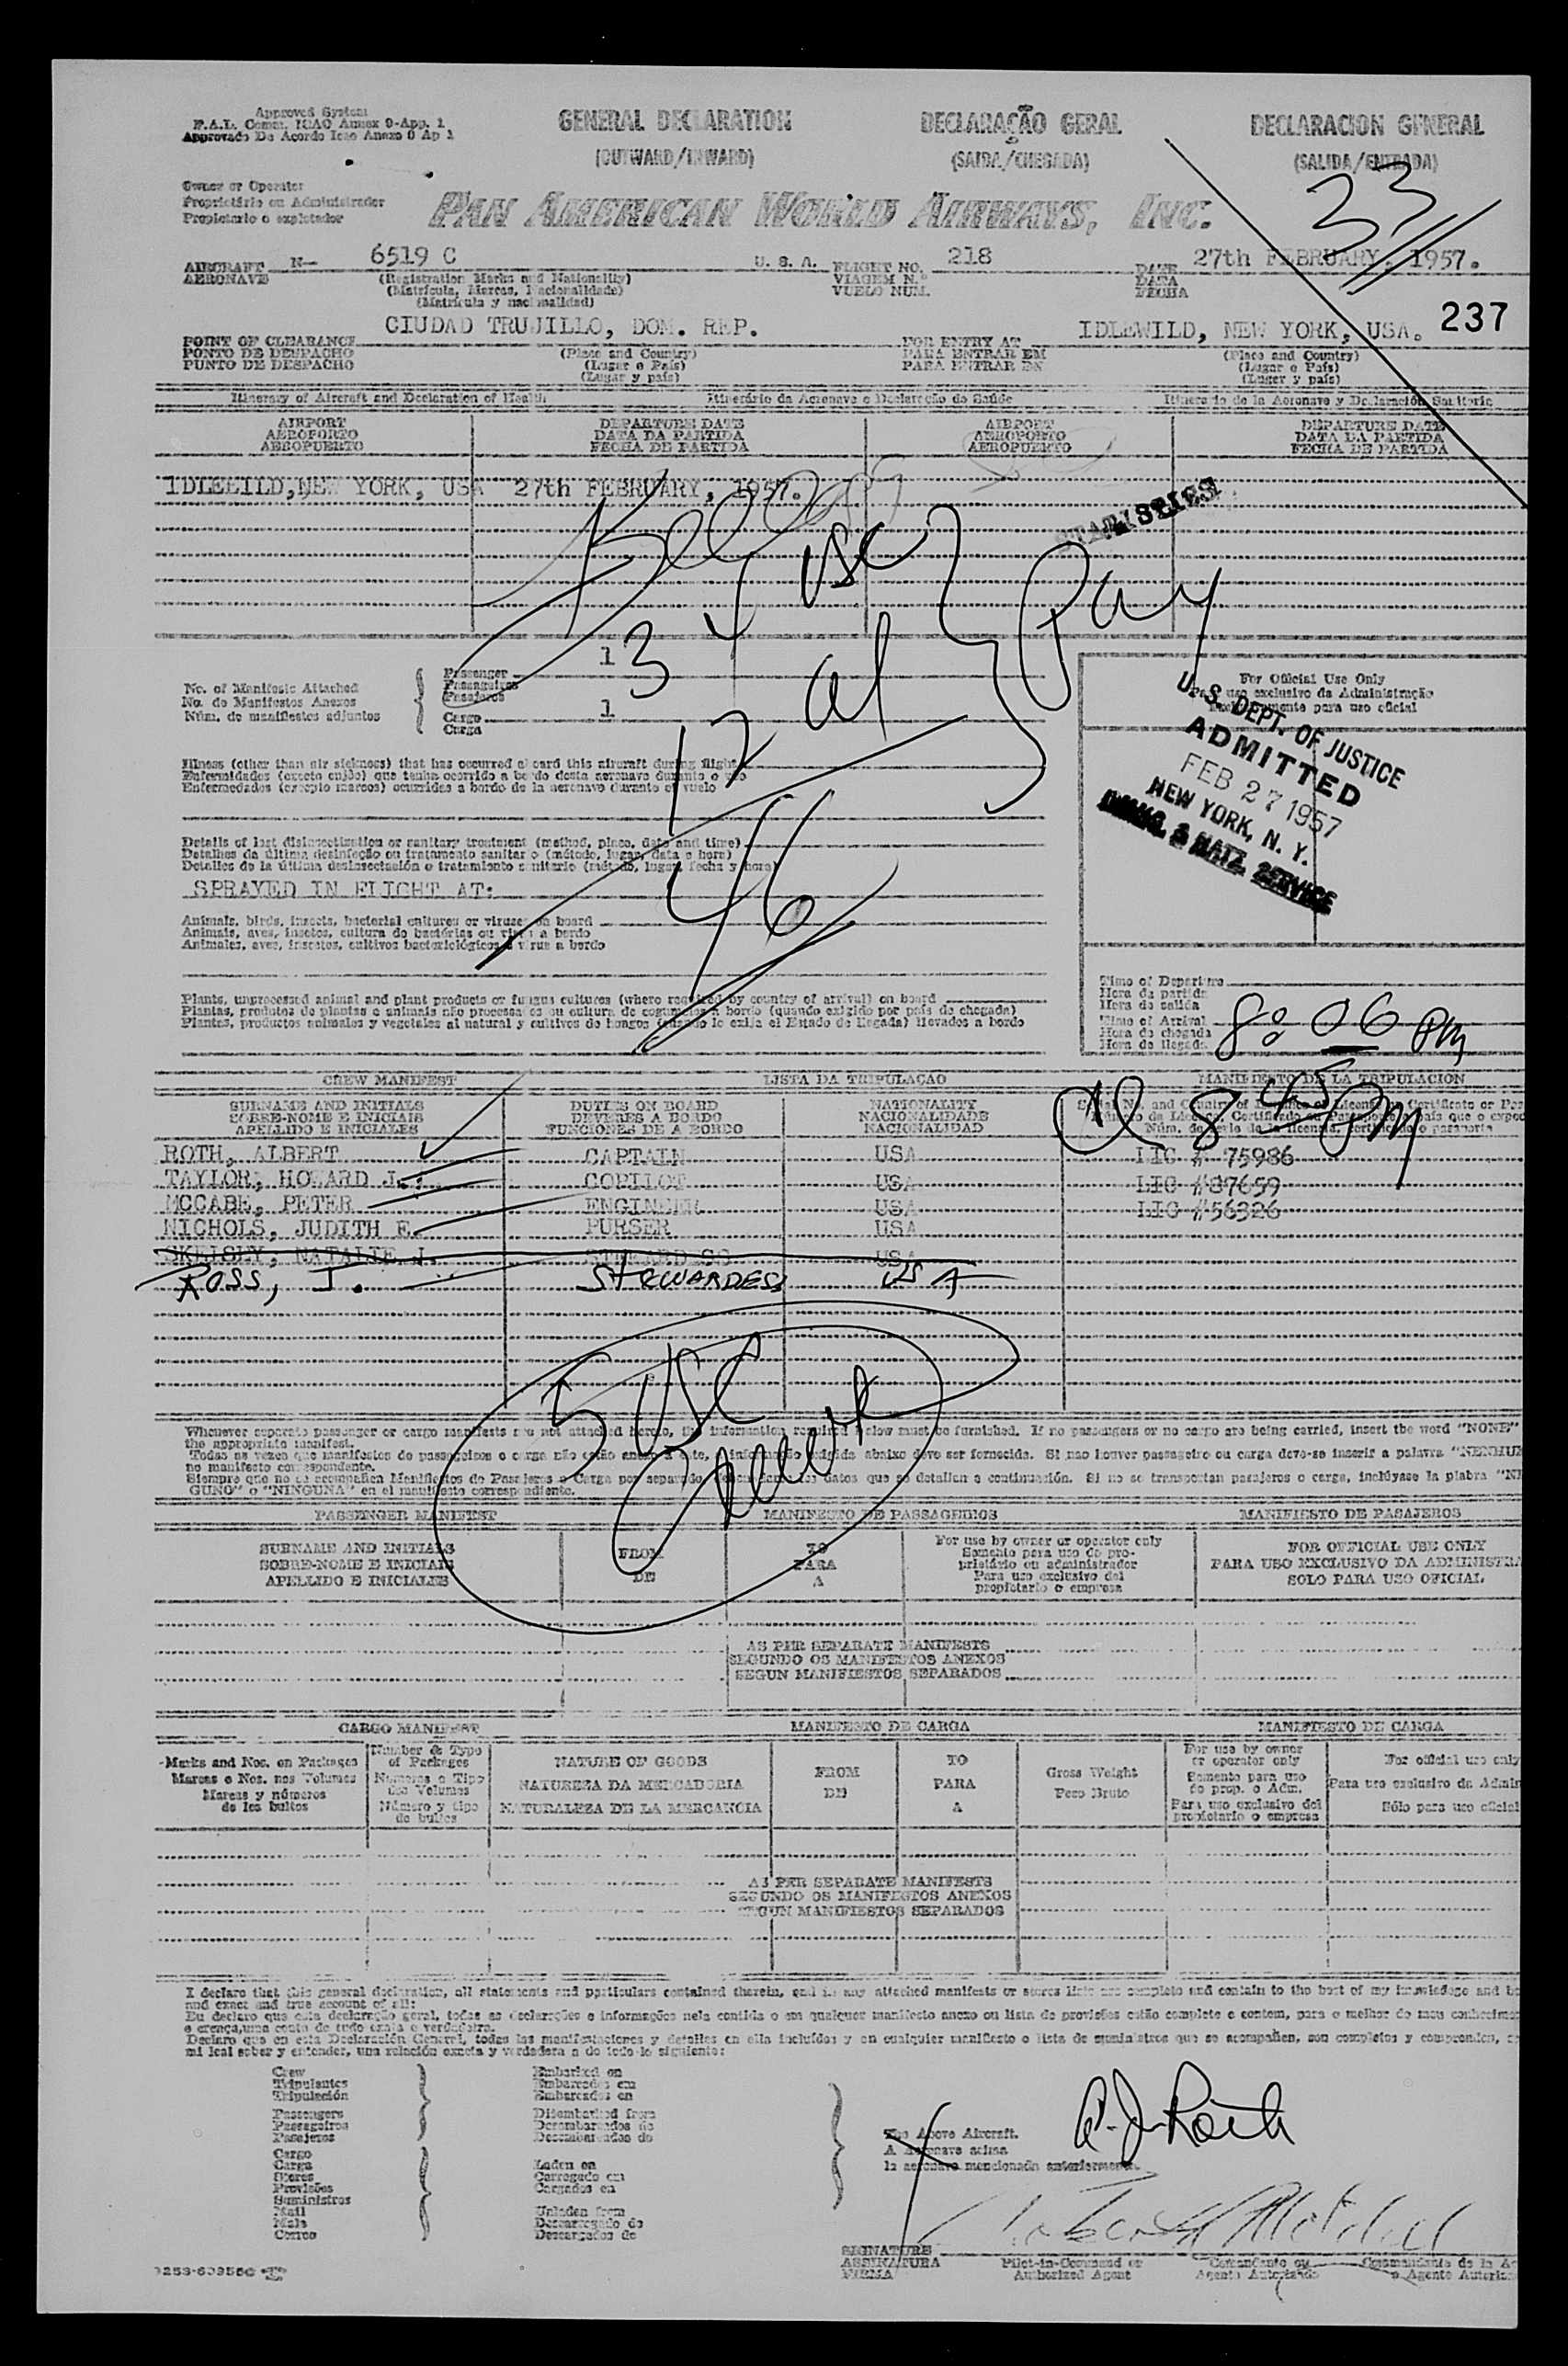 Approved System
F.A.L. Comm. ICAO Annex 9-App. 1
Approvado De Acordo Icao Anexo 9 Ap 1
GENERAL DECLARATION
(OUTWARD/INWARD)
DECLARAÇÃO GERAL
(SAIDA/CHEGADA)
DECLARACION GENERAL
(SALIDA/ENTRADA)
33
Owner or Operator
Proprietário ou Administrador
Propietario o explotador
PAN AMERICAN WORLD AIRWAYS, INC.
AIRCRAFT N- 6519 C U. S. A. FLIGHT NO. 218 DATE 27th FEBRUARY, 1957.
AERONAVE (Registration Marks and Nationality) VIAGEM N.º DATA
(Matrícula, Marcas, Nacionalidade) VUELO NUM. FECHA
(Matrícula y nacionalidad)
237
POINT OF CLEARANCE CIUDAD TRUJILLO, DOM. REP. FOR ENTRY AT IDLEWILD, NEW YORK, USA.
PONTO DE DESPACHO (Place and Country) PARA ENTRAR EM (Place and Country)
PUNTO DE DESPACHO (Lugar e País) PARA ENTRAR EN (Lugar e País)
(Lugar y país) (Lugar y país)
Itinerary of Aircraft and Declaration of Health Itinerário da Aeronave e Declaração de Saúde Itinerario de la Aeronave y Declaración Sanitaria
AIRPORT DEPARTURE DATE AIRPORT DEPARTURE DATE
AEROPORTO DATA DA PARTIDA AEROPORTO DATA DA PARTIDA
AEROPUERTO FECHA DE PARTIDA AEROPUERTO FECHA DE PARTIDA
IDLEWILD, NEW YORK, USA 27th FEBRUARY, 1957.
STATISTICS
34 USC
12 al
Pay
46
No. of Manifests Attached
No. de Manifestos Anexos
Núm. de manifiestos adjuntos
Passenger 1
Passageiros
Pasajeros
Cargo 1
Carga
For Official Use Only
Para uso exclusivo da Administração
Exclusivamente para uso oficial
U. S. DEPT. OF JUSTICE
ADMITTED
FEB 27 1957
NEW YORK, N. Y.
IMMIG. & NATZ. SERVICE
Illness (other than air sickness) that has occurred aboard this aircraft during flight
Enfermidades (exceto enjôo) que tenha ocorrido a bordo desta aeronave durante o vôo
Enfermedades (excepto mareos) ocurridas a bordo de la aeronave durante el vuelo
Details of last disinsectization or sanitary treatment (method, place, date and time)
Detalhes da última desinfeção ou tratamento sanitario (método, lugar, data e hora)
Detalles de la última desinsectación o tratamiento sanitario (método, lugar, fecha y hora)
SPRAYED IN FLIGHT AT:
Animals, birds, insects, bacterial cultures or viruses on board
Animais, aves, insetos, cultura de bactérias ou virus a bordo
Animales, aves, insectos, cultivos bacteriológicos o virus a bordo
Plants, unprocessed animal and plant products or fungus cultures (where required by country of arrival) on board
Plantas, produtos de plantas e animais não processados ou cultura de cogumelos a bordo (quando exigido por país de chegada)
Plantas, productos animales y vegetales al natural y cultivos de hongos (cuando lo exija el Estado de llegada) llevados a bordo
Time of Departure
Hora da partida
Hora de salida
Time of Arrival 8:06 PM
Hora da chegada
Hora de llegada
8 45 PM
CREW MANIFEST LISTA DA TRIPULAÇÃO MANIFIESTO DE LA TRIPULACION
SURNAME AND INITIALS DUTIES ON BOARD NATIONALITY
SOBRE-NOME E INICIAIS DEVERES A BORDO NACIONALIDADE
APELLIDO E INICIALES FUNCIONES DE A BORDO NACIONALIDAD
ROTH, ALBERT CAPTAIN USA LIC # 75986
TAYLOR, HOWARD J. COPILOT USA LIC #87659
MCCABE, PETER ENGINEER USA LIC #56326
NICHOLS, JUDITH E. PURSER USA
SKELSEY, NATALIE J. STEWARDESS USA
ROSS, J. STEWARDESS USA
5 USC
Whenever separate passenger or cargo manifests are not attached hereto, the information required below must be furnished. If no passengers or no cargo are being carried, insert the word "NONE"
the appropriate manifest.
Todas as vezes que manifestos de passageiros e carga não estão anexo a este, a informação exigida abaixo deve ser fornecida. Si nao houver passageiro ou carga deve-se inserir a palavra "NENHUM
no manifesto correspondente.
Siempre que no se acompañen Manifiestos de Pasajeros o Carga por separado, los datos que se detallan a continuación. Si no se transportan pasajeros o carga, inclúyase la plabra "NI
GUNO" o "NINGUNA" en el manifiesto correspondiente.
PASSENGER MANIFEST MANIFESTO DE PASSAGEIROS MANIFIESTO DE PASAJEROS
SURNAME AND INITIALS FROM TO For use by owner or operator only FOR OFFICIAL USE ONLY
SOBRE-NOME E INICIAIS DE PARA Somente para uso do proprietário ou administrador PARA USO EXCLUSIVO DA ADMINISTRA
APELLIDO E INICIALES A Para uso exclusivo del propietario o empresa SOLO PARA USO OFICIAL
AS PER SEPARATE MANIFESTS
SEGUNDO OS MANIFESTOS ANEXOS
SEGUN MANIFIESTOS SEPARADOS
CARGO MANIFEST MANIFESTO DE CARGA MANIFIESTO DE CARGA
Marks and Nos. on Packages Number & Type of Packages NATURE OF GOODS FROM TO Gross Weight For use by owner or operator only For official use only
Marcas e Nos. nos Volumes Numeros e Tipo dos Volumes NATUREZA DA MERCADORIA DE PARA Peso Bruto Somente para uso do prop. o Adm. Para uso exclusivo da Admin
Marcas y números de los bultos Número y tipo de bultos NATURALEZA DE LA MERCANCIA A Para uso exclusivo del propietario o empresa Sólo para uso oficial
AS PER SEPARATE MANIFESTS
SEGUNDO OS MANIFESTOS ANEXOS
SEGUN MANIFIESTOS SEPARADOS
I declare that this general declaration, all statements and particulars contained therein, and in any attached manifests or stores lists are complete and contain to the best of my knowledge and be
and exact and true account of all:
Eu declaro que esta declaração geral, todas as declarações e informações nela contida o em qualquer manifesto anexo ou lista de provisões estão completo e contem, para o melhor do meu conhecimen
e crença, uma conta de tudo exata e verdadeira.
Declaro que esta Declaración General, todas las manifestaciones y detalles en ella incluídos y en cualquier manifiesto o lista de suministros que se acompañen, son completos y comprenden,
mi leal saber y entender, una relación exacta y verdadera a de todo lo siguiente:
Crew Embarked on
Tripulantes Embarcados em
Tripulación Embarcados en
Passengers Disembarked from
Passageiros Desembarcados de
Pasajeros Desembarcados de
Cargo
Carga Laden on
Stores Carregado em
Provisões Cargados en
Suministros
Mail Unladen from
Mala Descarregado de
Correo Descargados de
The Above Aircraft.
A Aeronave acima
la aeronave mencionada anteriormente.
A. J. Roth
SIGNATURE
ASSINATURA Pilot-in-Command or Comandante ou Commandante de la A
FIRMA Authorized Agent Agente Autorizado o Agente Autoriz